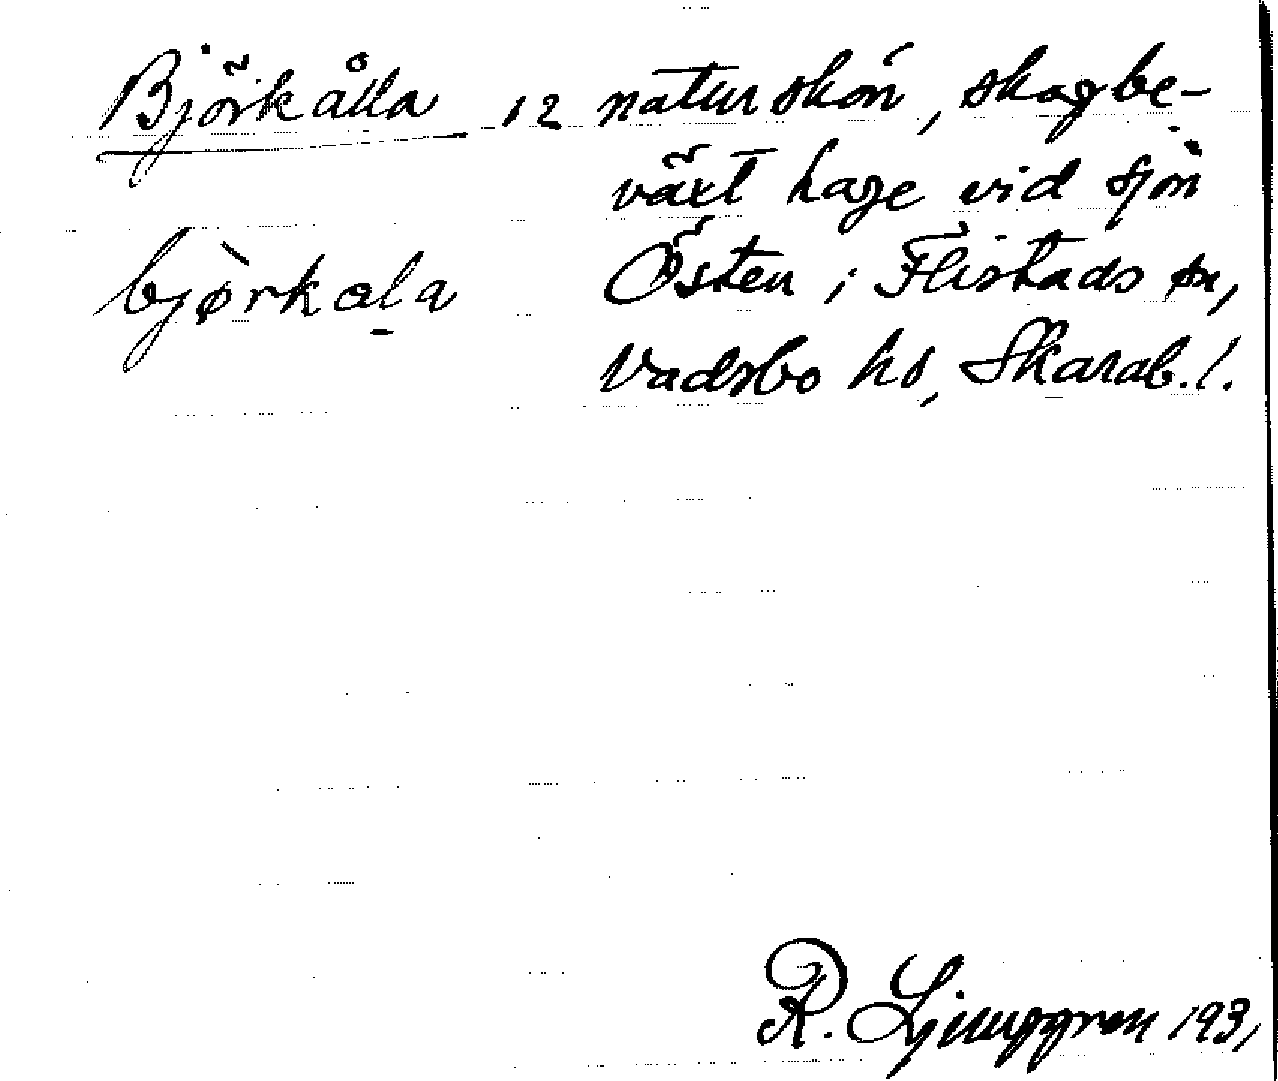 Björkålla 12 naturskön, skogbe-
växt hage vid sjön
björkala Östen i Flistads sn,
Vadsbo hd, Skarab. l.
R. Ljunggren 1931